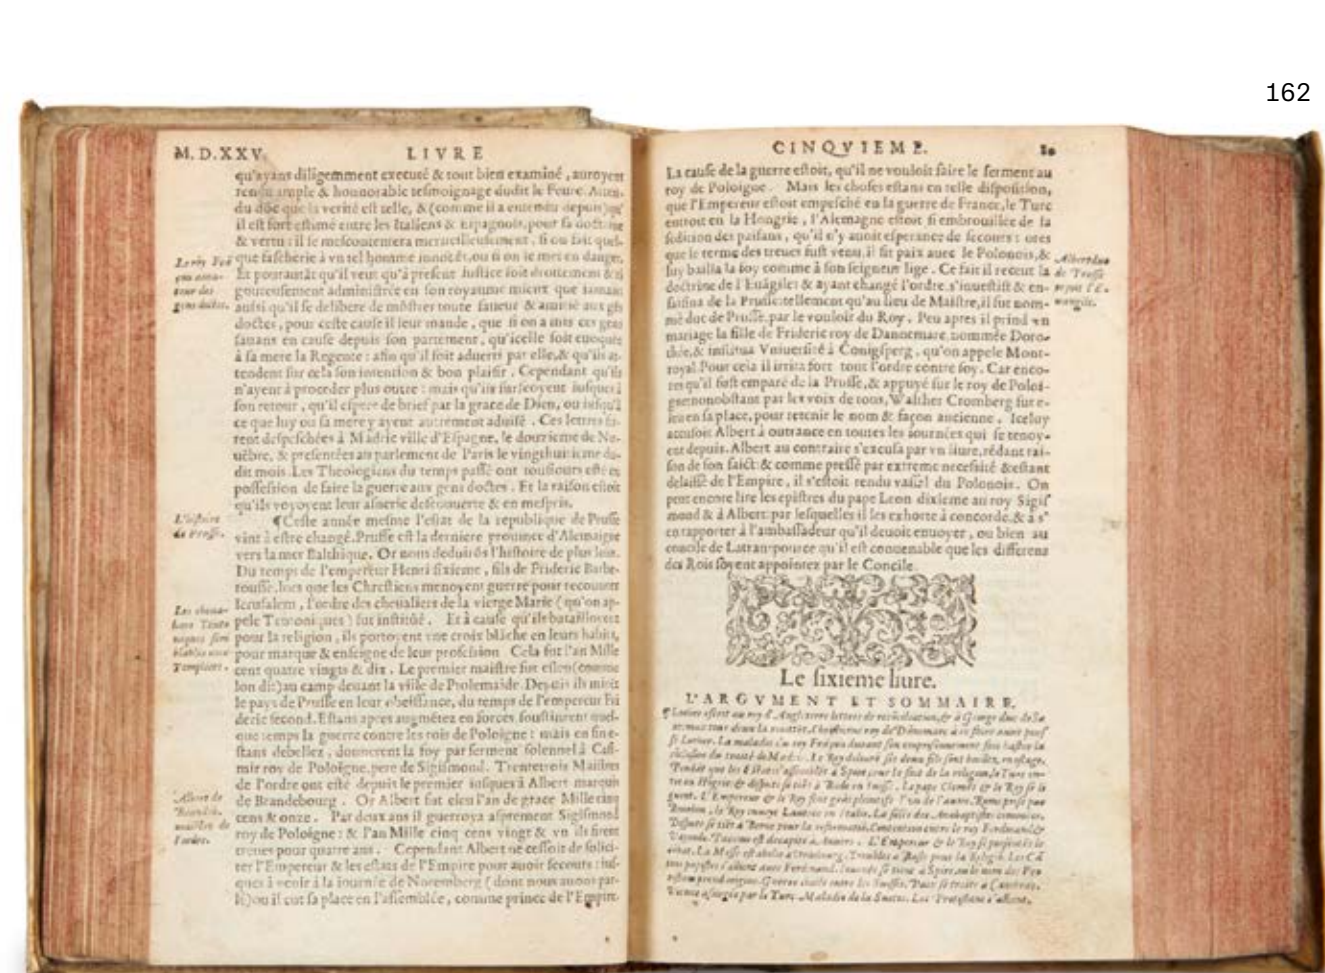 162
M. D. XXV.
LIVRE
qu'ayans diligemment executé & tout bien examiné, auroyent
rendu ample & honnorable tesmoignage dudit le Feure. Atten-
du dõc que la verité est telle, & (comme il a entendu depuis) qu'
il est fort estimé entre les Italiens & Espagnols, pour sa doctrine
& vertu: il se mescontentera merueilleusement, si on fait quel-
que fascherie à vn tel homme innocẽt, ou si on le met en danger.
Et pourautãt qu'il veut qu'à present Iustice soit droittement & ri
goureusement administrée en son royaume mieux que iamais
aussi qu'il se delibere de mõstrer toute faueur & amitié aux gẽs
doctes, pour ceste cause il leur mande, que si on a mis ces gens
sauans en cause depuis son partement, qu'icelle soit euoquée
à sa mere la Regente: afin qu'il soit aduerti par elle, & qu'ils at-
tendent sur cela son intention & bon plaisir. Cependant qu'ils
n'ayent à proceder plus outre: mais qu'ils surseoyent iusques à
son retour, qu'il espere de brief par la grace de Dieu, ou iusqu'à
ce que luy ou sa mere y ayent autrement aduisé. Ces lettres fu-
rent despeschées à Madric ville d'Espagne, le douzieme de No-
uẽbre, & presentées au parlement de Paris le vingthuitieme du-
dit mois. Les Theologiens du temps passé ont tousiours esté en
possession de faire la guerre aux gens doctes. Et la raison estoit
qu'ils voyoyent leur asnerie descouuerte & en mespris.
¶Ceste année mesme l'estat de la republique de Prusse
vint à estre changé. Prusse est la derniere prouince d'Alemaigne
vers la mer Balthique. Or nous deduirõs l'histoire de plus loin.
Du temps de l'empereur Henri sixieme, fils de Frideric Barbe-
rousse, lors que les Chrestiens menoyent guerre pour recouurer
Ierusalem, l'ordre des cheualiers de la vierge Marie (qu'on ap-
pele Teutoniques) fut institué. Et à cause qu'ils batailloyent
pour la religion, ils portoyent vne croix blãche en leurs habits,
pour marque & enseigne de leur profession. Cela fut l'an Mille
cent quatre vingts & dix. Le premier maistre fut esleu (comme
lon dit) au camp deuant la ville de Ptolemaide. Depuis ils mirẽt
le pays de Prusse en leur obeissance, du temps de l'empereur Fri
deric second. Estans apres augmẽtez en forces, soustindrent quel-
que temps la guerre contre les rois de Poloigne: mais en fin e-
stans debellez, donnerent la foy par serment solennel à Casi-
mir roy de Poloigne, pere de Sigismond. Trentetrois Maistres
de l'ordre ont esté depuis le premier iusques à Albert marquis
de Brandebourg. Or Albert fut eleu l'an de grace Mille cinq
cens & onze. Par deux ans il guerroya asprement Sigismond
roy de Poloigne: & l'an Mille cinq cens vingt & vn ils firent
treues pour quatre ans. Cependant Albert ne cessoit de solici-
ter l'Empereur & les estats de l'Empire pour auoir secours: ius-
ques à venir à la iournée de Noremberg (dont nous auons par-
lé) ou il eut sa place en l'assemblée, comme prince de l'Empire.
gens doctes.
L'histoire
de Prusse.
Les cheua-
liers Teuto
niques sem
blables aux
Templiers.
Albert de
Brandeb.
maistre de
l'ordre.
CINQVIEME.
80
La cause de la guerre estoit, qu'il ne vouloit faire le serment au
roy de Poloigne. Mais les choses estans en telle disposition,
que l'Empereur estoit empesché en la guerre de France, le Turc
entroit en la Hongrie, l'Alemagne estoit si embrouillée de la
sedition des paisans, qu'il n'y auoit esperance de secours: ores
que le terme des treues fust venu, il fit paix auec le Polonois, &
luy bailla la foy comme à son seigneur lige. Ce fait il receut la
doctrine de l'Euãgile: & ayant changé l'ordre, s'inuestit & en-
saisina de la Prusse: tellement qu'au lieu de Maistre, il fut nom-
mé duc de Prusse, par le vouloir du Roy. Peu apres il prind en
mariage la fille de Frideric roy de Dannemarc, nommée Doro-
thée, & institua Vniuersité à Conigsperg, qu'on appele Mont-
royal. Pour cela il irrita fort tout l'ordre contre soy. Car enco-
res qu'il fust emparé de la Prusse, & appuyé sur le roy de Poloi-
gne: nonobstant par les voix de tous, Walther Cromberg fut e-
leu en sa place, pour retenir le nom & façon ancienne. Iceluy
accusoit Albert à outrance en toutes les iournées qui se tenoy-
ent depuis. Albert au contraire s'excusa par vn liure, rẽdant rai-
son de son faict: & comme pressé par extreme necesité & estant
delaissé de l'Empire, il s'estoit rendu vassal du Polonois. On
peut encore lire les epistres du pape Leon dixieme au roy Sigis
mond & à Albert: par lesquelles il les exhorte à concorde, & à s'
en rapporter à l'ambassadeur qu'il deuoit enuoyer, ou bien au
concile de Latran: pource qu'il est conuenable que les differens
des Rois soyent appointez par le Concile.
Albert duc
de Prusse
reçoit l'E-
uangile.
Le sixieme liure.
L'ARGVMENT ET SOMMAIRE.
¶ Luther escrit au roy d'Angleterre lettres de reconciliation, & à George duc de Sa
Tandis que les Estats s'assemblẽt à Spire pour le fait de la religion, le Turc en-
tre en Hõgrie: & dispute se tiẽt à Bade en Suisse. Le pape Clemẽt & le Roy se li
guent. L'Empereur & le Roy font grãs plaintifs l'vn de l'autre. Rome prise par
Bourbon, le Roy enuoye Lautrec en Italie. La secte des Anabaptistes
Dispute se tiẽt à Berne pour la reformatiõ. Contention entre le roy Ferdinand &
La Messe est abolie à Strasbourg. Troubles à Basle pour la Religiõ. Les Cã
tons papistes s'allient auec Ferdinand. Iournée se tient à Spire, ou le nom des Pro
testans prend origine. Guerre ciuile entre les Suisses. Paix se traite à Cambray.
Vienne asiegée par le Turc. Maladie de la Suette. Les Protestans s'allient.